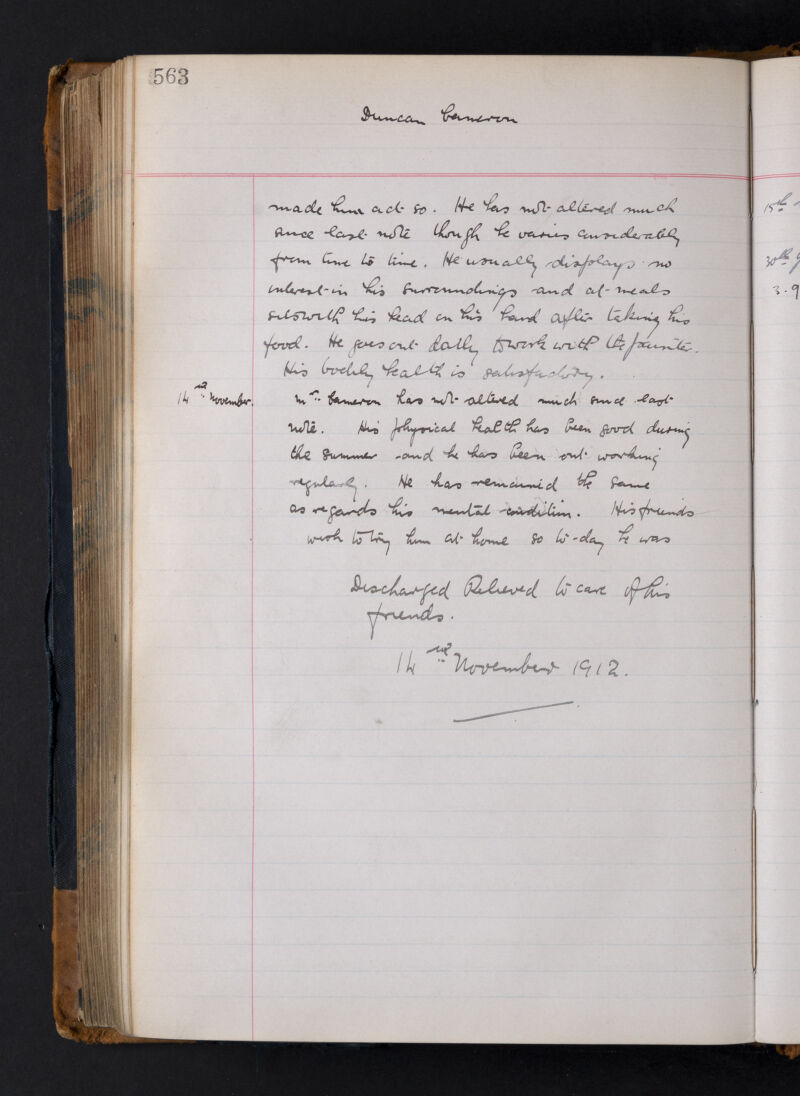 563
Duncan Cameron
made him act so. He has not altered much
since last note though he varies considerably
from time to time. He usually displays no
interest in his surroundings and at meals
sits with his head on his hand after taking his
food. He goes out daily to work with the painter.
His bodily health is satisfactory.
14th November. Mr. Cameron has not altered much since last
note. His physical health has been good during
the summer and he has been out working
regularly. He has remained the same
as regards his mental condition. His friends
wish to try him at home so to-day he was
Discharged Relieved to care of his
friends.
14th November 1912.
15th
30th
3.9